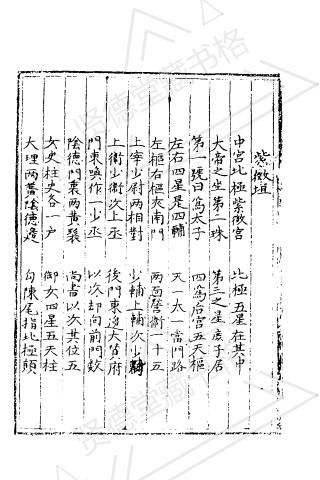 紫微垣
中宮北極紫微宮 北極五星在其中
大帝之坐第二珠 第三之星庶子居
第一號曰為太子 四為后宮五天樞
左右四星是四輔 天一太一當門路
左樞右樞夾南門 兩面營衛一十五
上宰少尉兩相對 少輔上輔次少
上衛少衛次上丞 後門東邊大贊府
門東喚作一少丞 以次却向前門數
陰德門裏兩黃聚 尚書以次其位五
女史柱史各一户 御女四星五天柱
大理兩黃陰德邊 勾陳尾指北極顛